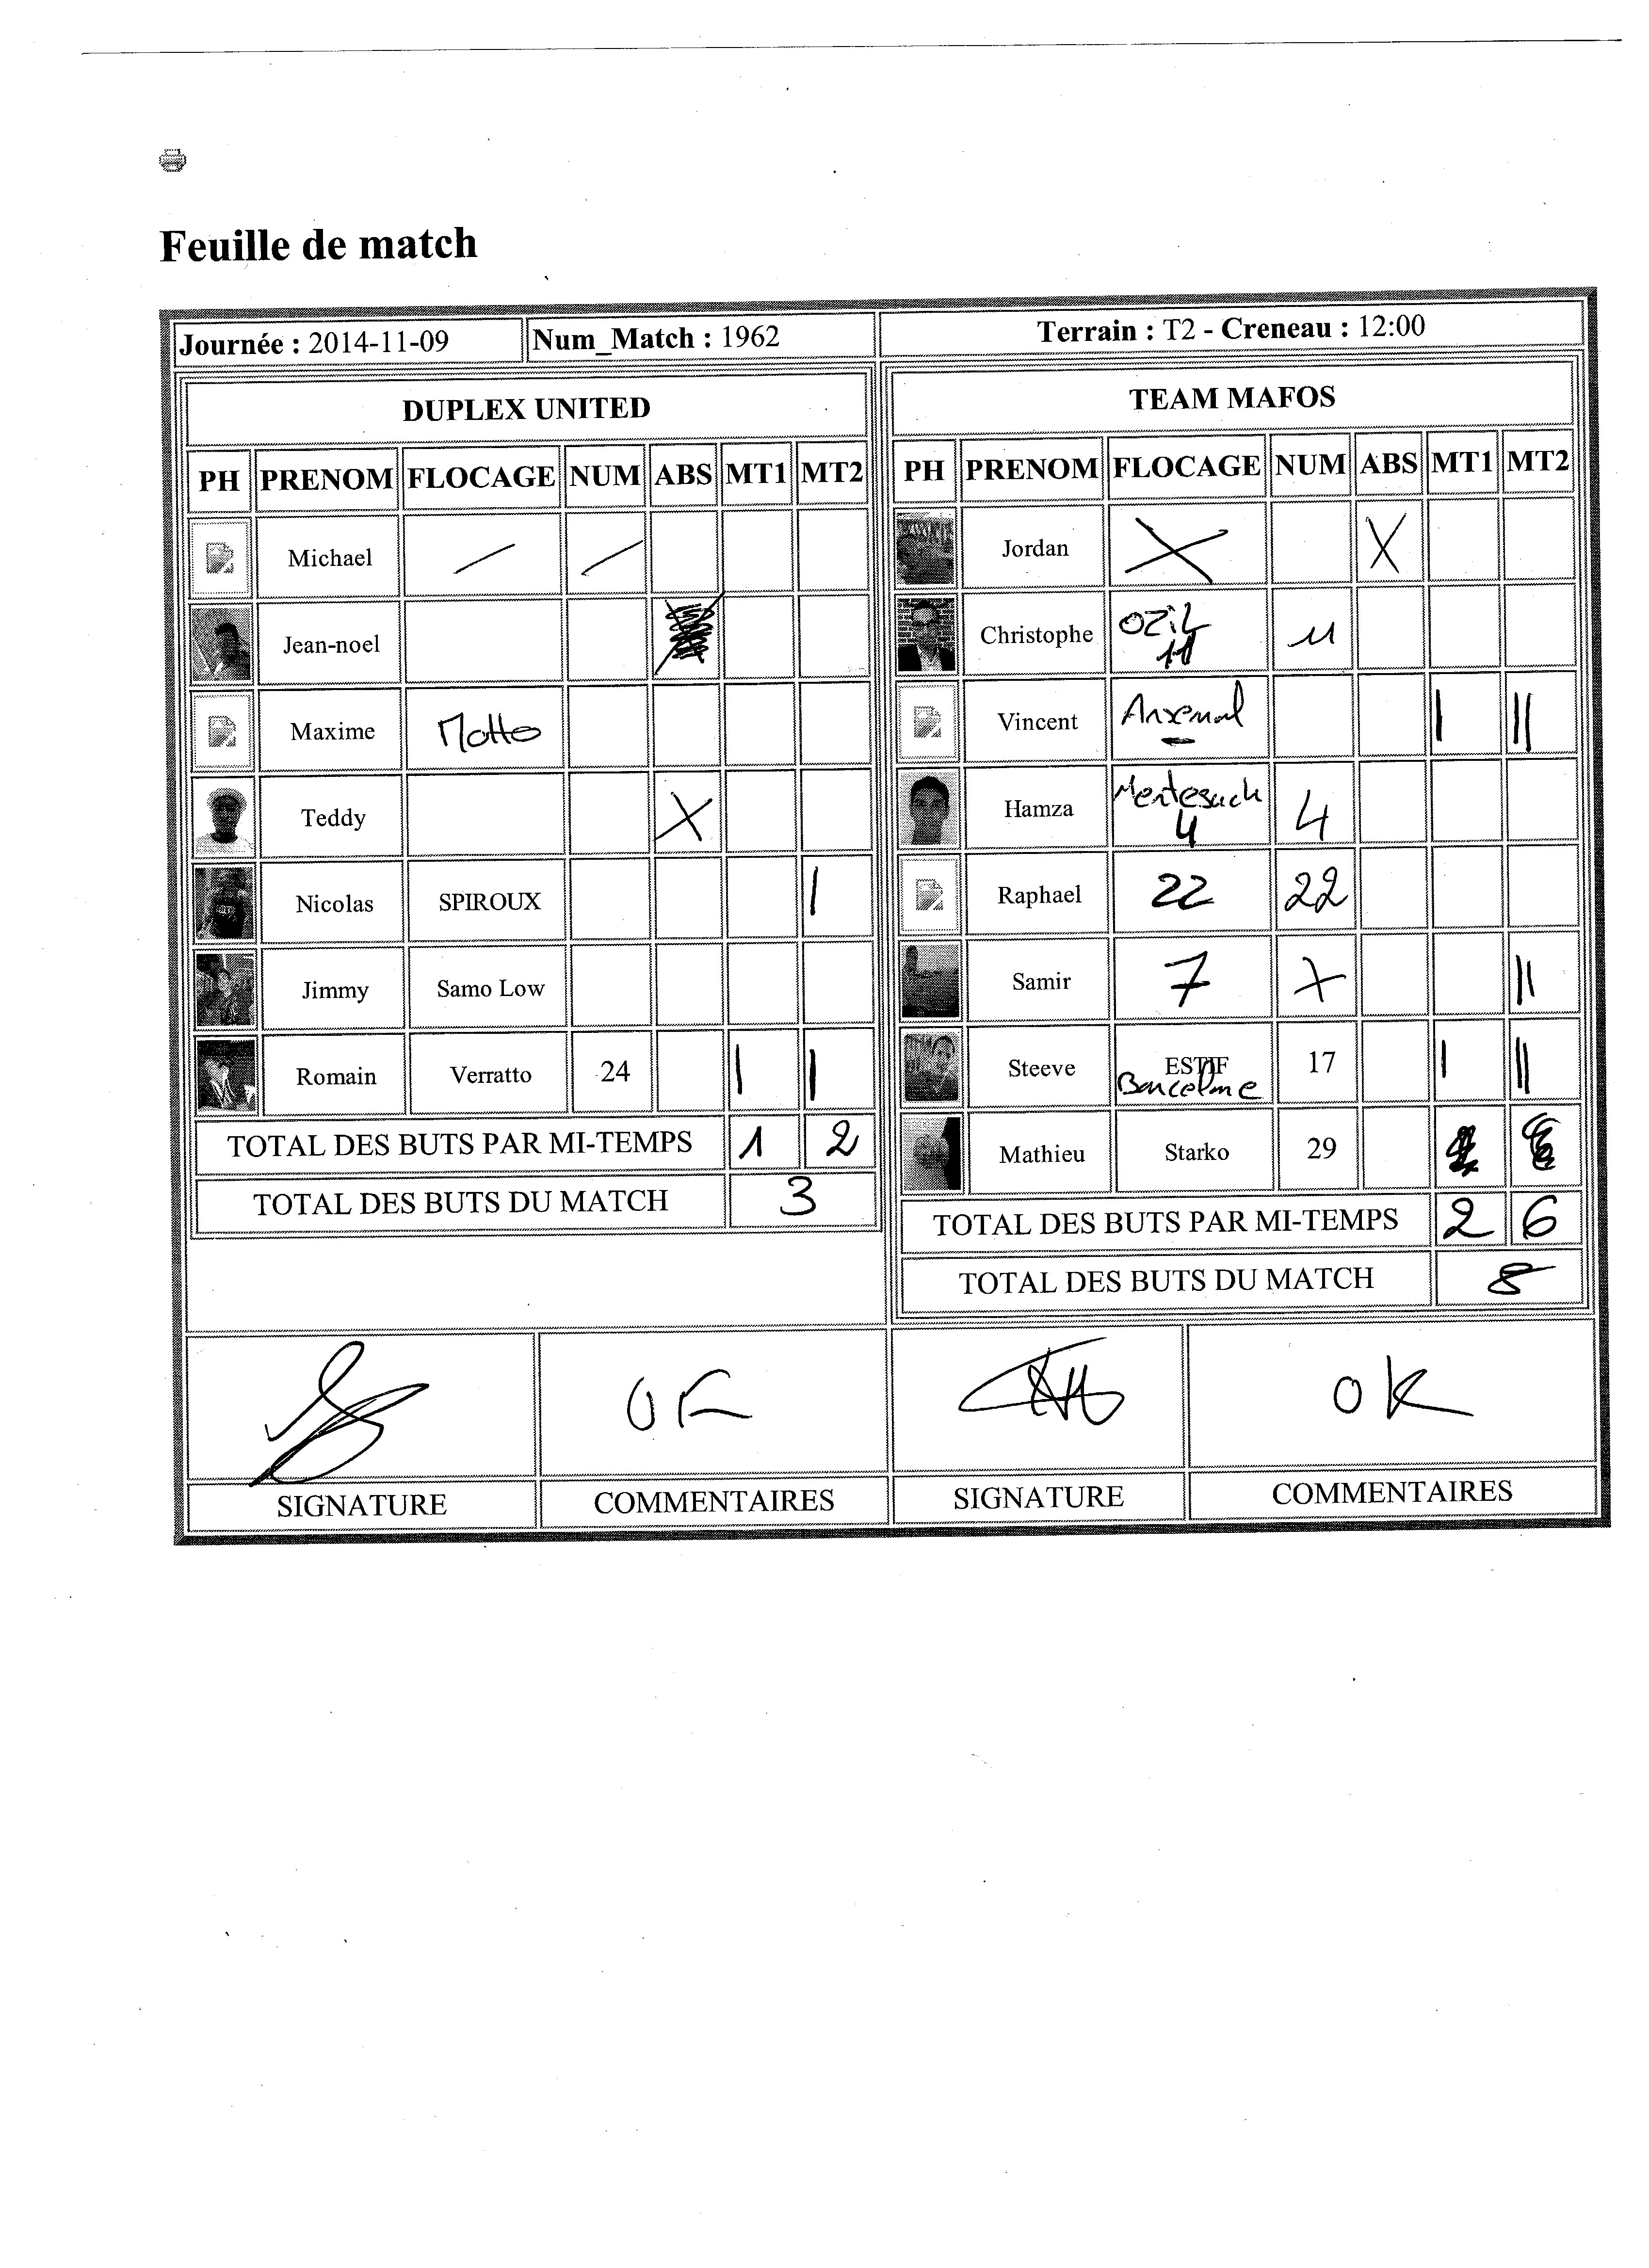 Feuille de match
Journée : 2014-11-09 Num_Match : 1962 Terrain : T2 - Creneau : 12:00
DUPLEX UNITED
PH PRENOM FLOCAGE NUM ABS MT1 MT2
Michael — —
Jean-noel
Maxime Motto
Teddy X
Nicolas SPIROUX |
Jimmy Samo Low
Romain Verratto 24 | |
TOTAL DES BUTS PAR MI-TEMPS 1 2
TOTAL DES BUTS DU MATCH 3
TEAM MAFOS
PH PRENOM FLOCAGE NUM ABS MT1 MT2
Jordan X X
Christophe OZiL 11 11
Vincent Arsenal | ||
Hamza Mertesach 4 4
Raphael 22 22
Samir 7 7 ||
Steeve ESTIF Barcelone 17 | ||
Mathieu Starko 29
TOTAL DES BUTS PAR MI-TEMPS 2 6
TOTAL DES BUTS DU MATCH 8
OK OK
SIGNATURE COMMENTAIRES SIGNATURE COMMENTAIRES